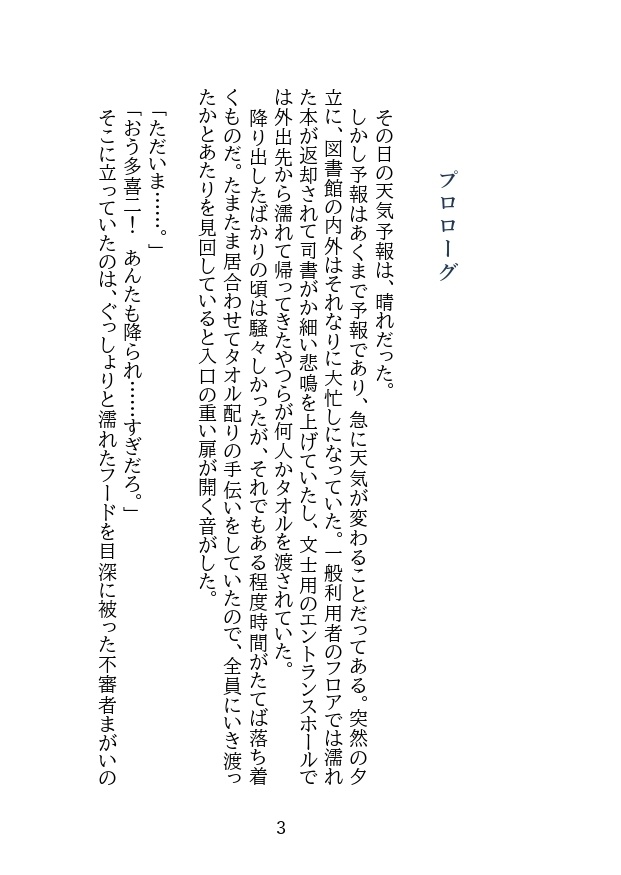 プロローグ
その日の天気予報は、晴れだった。
しかし予報はあくまで予報であり、急に天気が変わることだってある。突然の夕
立に、図書館の内外はそれなりに大忙しになっていた。一般利用者のフロアでは濡れ
た本が返却されて司書がか細い悲鳴を上げていたし、文士用のエントランスホールで
は外出先から濡れて帰ってきたやつらが何人かタオルを渡されていた。
降り出したばかりの頃は騒々しかったが、それでもある程度時間がたてば落ち着
くものだ。たまたま居合わせてタオル配りの手伝いをしていたので、全員にいき渡っ
たかとあたりを見回していると入口の重い扉が開く音がした。
「ただいま……。」
「おう多喜二！　あんたも降られ……すぎだろ。」
そこに立っていたのは、ぐっしょりと濡れたフードを目深に被った不審者まがいの
3